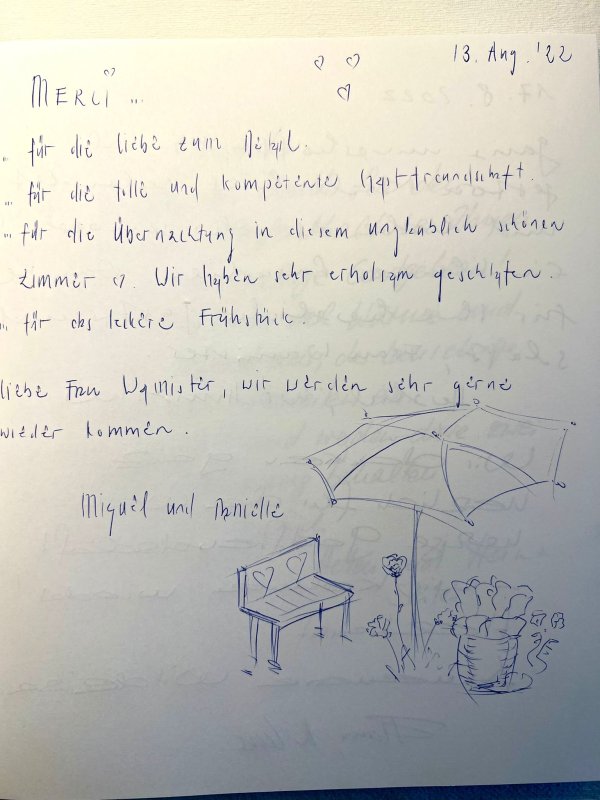 13. Aug. '22
MERCI ...
... für die liebe zum Detail.
... für die tolle und kompetente Gastfreundschaft.
... für die Übernachtung in diesem unglaublich schönen
Zimmer ♡. Wir haben sehr erholsam geschlafen.
... für das leckere Frühstück.
liebe Frau Wamister, wir werden sehr gerne
wieder kommen.
Miguel und Danielle